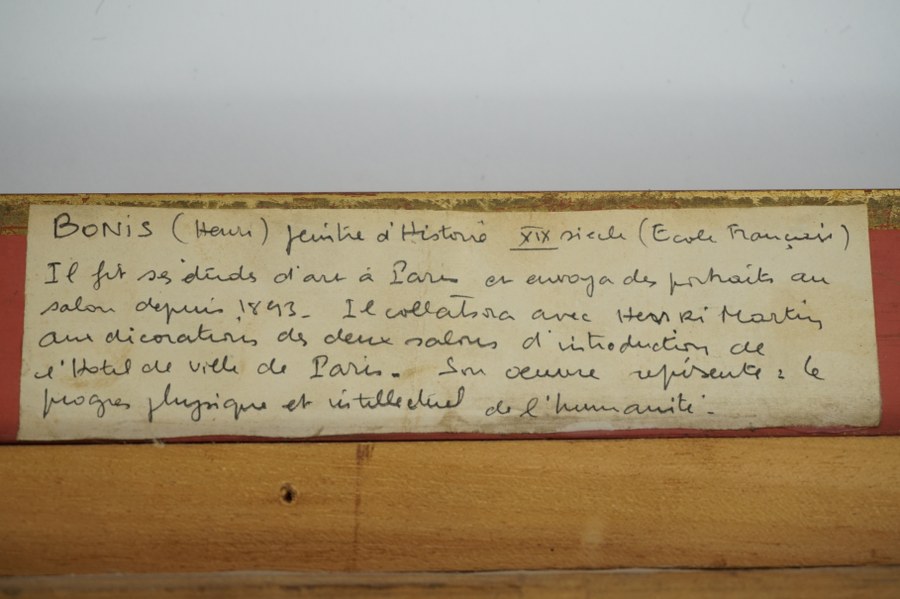 BONIS (Henri) peintre d'Histoire XIX siècle (Ecole Française)
Il fit ses études d'art à Paris et envoya des portraits au
salon depuis 1893. Il collabora avec Henri Martin
aux décorations des deux salons d'introduction de
l'Hotel de ville de Paris. Son œuvre représente : le
progrès physique et intellectuel de l'humanité.